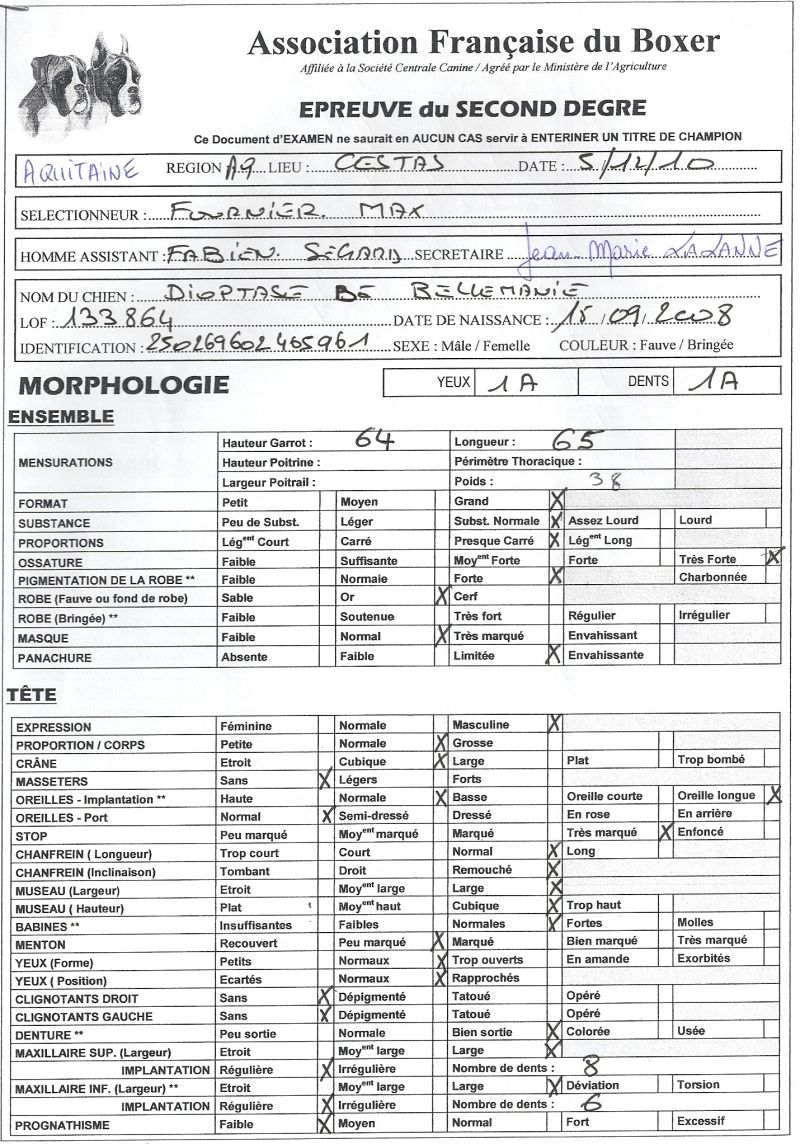 Association Française du Boxer
Affiliée à la Société Centrale Canine / Agréé par le Ministère de l'Agriculture
EPREUVE du SECOND DEGRE
Ce Document d'EXAMEN ne saurait en AUCUN CAS servir à ENTERINER UN TITRE DE CHAMPION
AQUITAINE REGION Aq LIEU : CESTAS DATE : 5/12/10
SELECTIONNEUR : FOURNIER MAX
HOMME ASSISTANT : FABIEN SEGARD SECRETAIRE Jean-Marie LALANNE
NOM DU CHIEN : DIOPTASE DE BELLEMANIE
LOF : 133864 DATE DE NAISSANCE : 15/09/2008
IDENTIFICATION : 250269602465961 SEXE : Mâle / Femelle COULEUR : Fauve / Bringée
MORPHOLOGIE YEUX 1A DENTS 1A
ENSEMBLE
MENSURATIONS Hauteur Garrot : 64 Longueur : 65
Hauteur Poitrine : Périmètre Thoracique :
Largeur Poitrail : Poids : 38
FORMAT Petit Moyen Grand X
SUBSTANCE Peu de Subst. Léger Subst. Normale X Assez Lourd Lourd
PROPORTIONS Légent Court Carré Presque Carré X Légent Long
OSSATURE Faible Suffisante Moyent Forte Forte Très Forte X
PIGMENTATION DE LA ROBE ** Faible Normale Forte X Charbonnée
ROBE (Fauve ou fond de robe) Sable Or X Cerf
ROBE (Bringée) ** Faible Soutenue Très fort Régulier Irrégulier
MASQUE Faible Normal X Très marqué Envahissant
PANACHURE Absente Faible Limitée X Envahissante
TÊTE
EXPRESSION Féminine Normale Masculine X
PROPORTION / CORPS Petite Normale X Grosse
CRÂNE Etroit Cubique X Large Plat Trop bombé
MASSETERS Sans X Légers Forts
OREILLES - Implantation ** Haute Normale X Basse Oreille courte Oreille longue X
OREILLES - Port Normal X Semi-dressé Dressé En rose En arrière
STOP Peu marqué Moyent marqué Marqué Très marqué X Enfoncé
CHANFREIN ( Longueur) Trop court Court Normal X Long
CHANFREIN (Inclinaison) Tombant Droit Remouché X
MUSEAU (Largeur) Etroit Moyent large Large X
MUSEAU ( Hauteur) Plat Moyent haut Cubique X Trop haut
BABINES ** Insuffisantes Faibles Normales X Fortes Molles
MENTON Recouvert Peu marqué X Marqué Bien marqué Très marqué
YEUX (Forme) Petits Normaux X Trop ouverts En amande Exorbités
YEUX ( Position) Ecartés Normaux X Rapprochés
CLIGNOTANTS DROIT Sans X Dépigmenté Tatoué Opéré
CLIGNOTANTS GAUCHE Sans X Dépigmenté Tatoué Opéré
DENTURE ** Peu sortie Normale Bien sortie X Colorée Usée
MAXILLAIRE SUP. (Largeur) Etroit Moyent large Large X
IMPLANTATION Régulière X Irrégulière Nombre de dents : 8
MAXILLAIRE INF. (Largeur) ** Etroit Moyent large Large X Déviation Torsion
IMPLANTATION Régulière X Irrégulière Nombre de dents : 6
PROGNATHISME Faible X Moyen Normal Fort Excessif